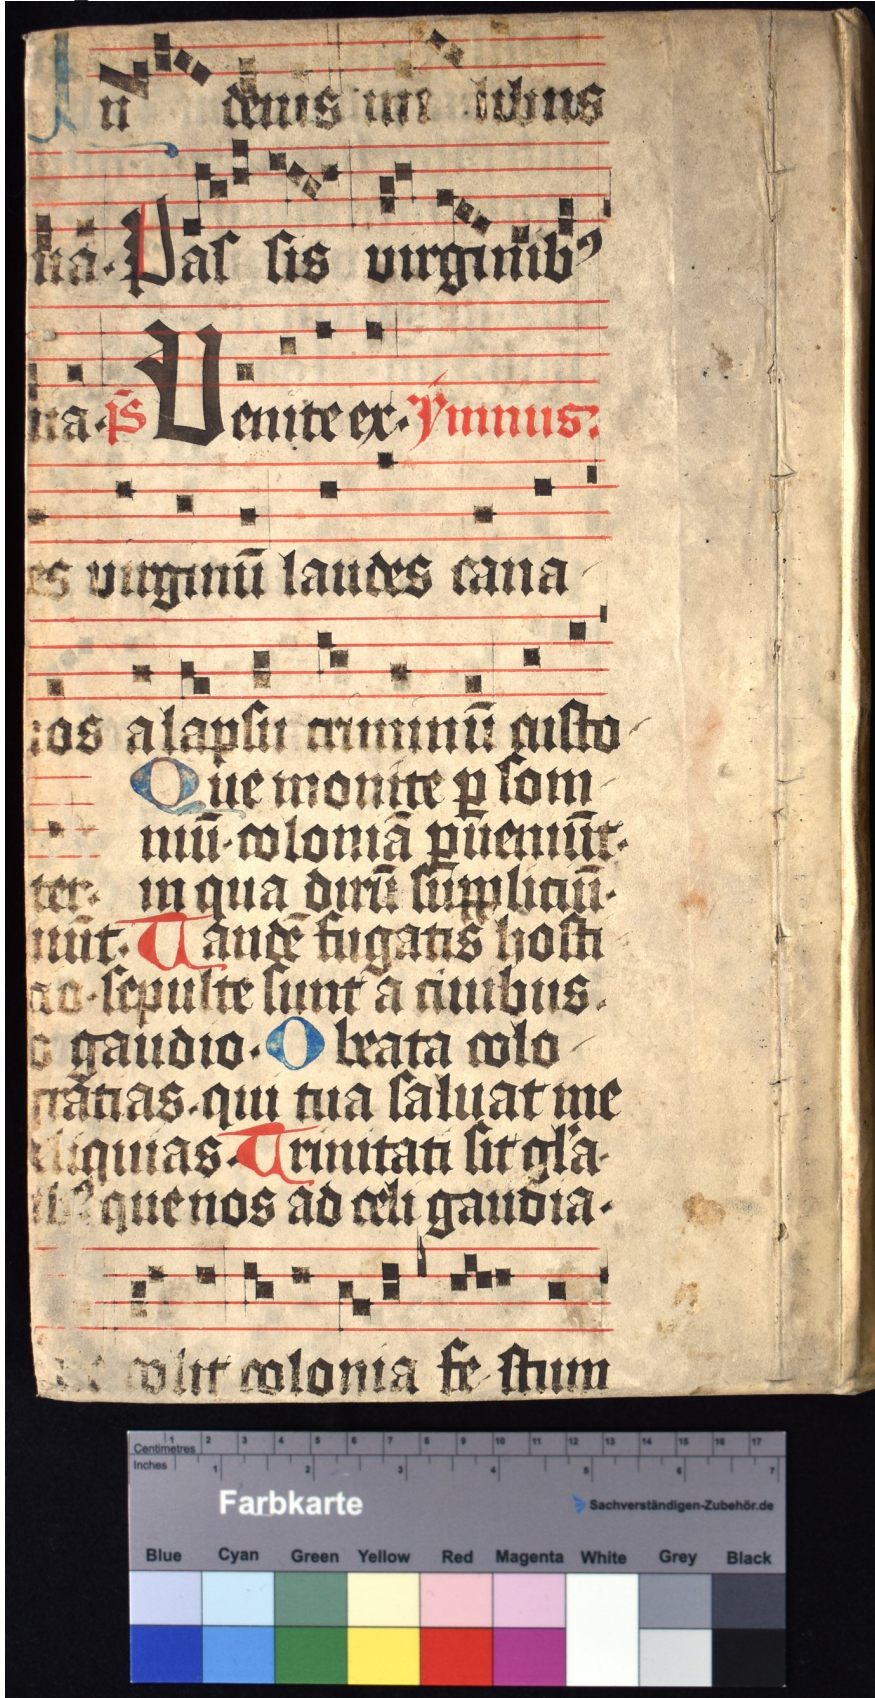 In denis mi libus
na. Pas sis virginibꝯ
na. p̄s Venite ex. Ymnus.
es virginū laudes cana
ros a lapsu criminū custo
Que monite ꝑ som
niū. coloniā ꝑueniūt.
ter. in qua dirū suppliciū.
iūt. Tandē fugatis hosti
sepulte sunt a ciuibus.
gaudio. O beata colo
gratias. qui tua saluat me
liquias. Trinitati sit gl'a
ibꝯ que nos ad celi gaudia.
colit colonia fe stum
Centimetres 1 2 3 4 5 6 7 8 9 10 11 12 13 14 15 16 17
Inches 1 2 3 4 5 6 7
Farbkarte Sachverständigen-Zubehör.de
Blue Cyan Green Yellow Red Magenta White Grey Black